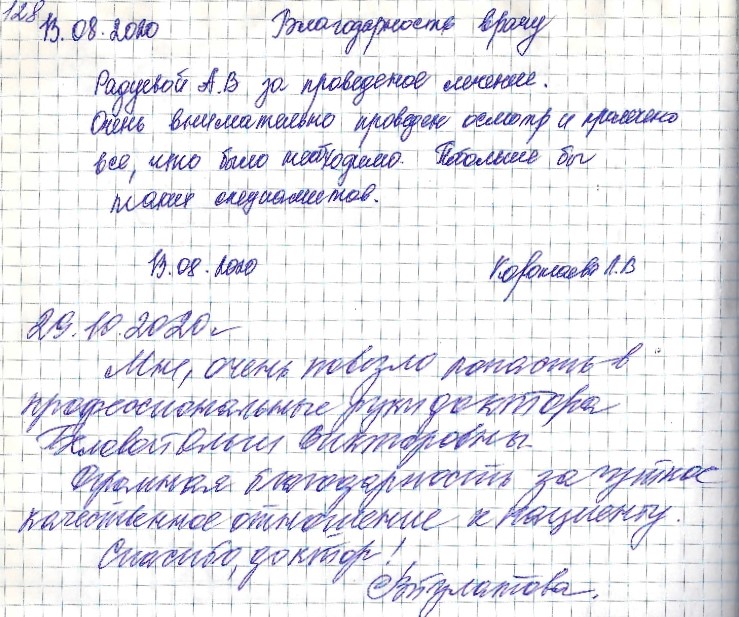 128
13.08.2020 Благодарность врачу
Радуевой А.В за проведеное лечение.
Очень внимательно проведен осмотр и пролечено
все, что было необходимо. Побольше бы
таких специалистов.
13.08.2020 Коротаева Л.В
29.10.2020г
Мне, очень повезло попасть в
профессиональные руки доктора
Беловой Ольги Викторовны
Огромная благодарность за чуткое
качественное отношение к пациенту.
Спасибо, доктор!